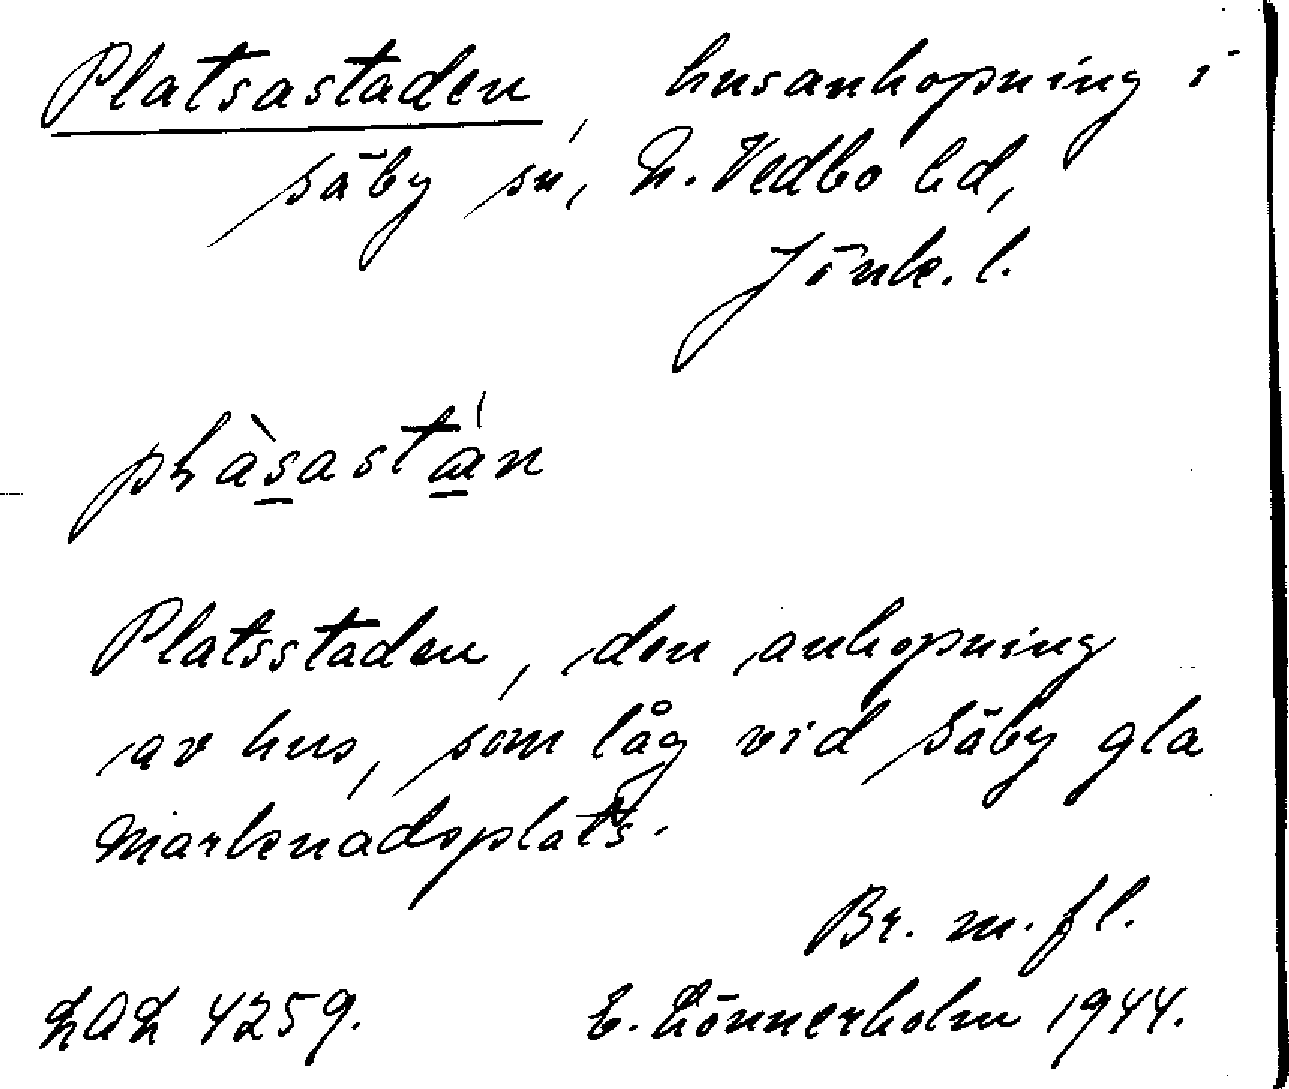 Platsastaden, husanhopning i
Säby sn, N. Vedbo hd,
Jönk. l.
Platsstaden, den anhopning
av hus, som låg vid Säby gla
marknadsplats.
Br. m. fl.
LAL 4259. E. Lönnerholm 1944.